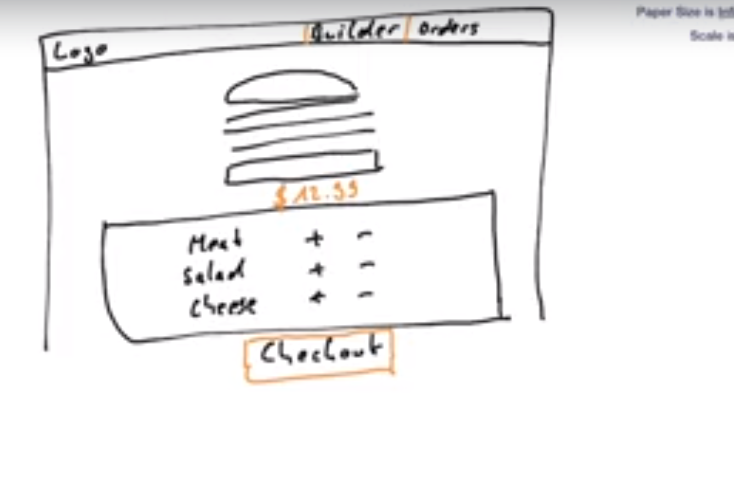 Paper Size is Inf
Scale is
Logo
Builder Orders
$ 12.99
Meat + -
Salad + -
Cheese + -
Checkout